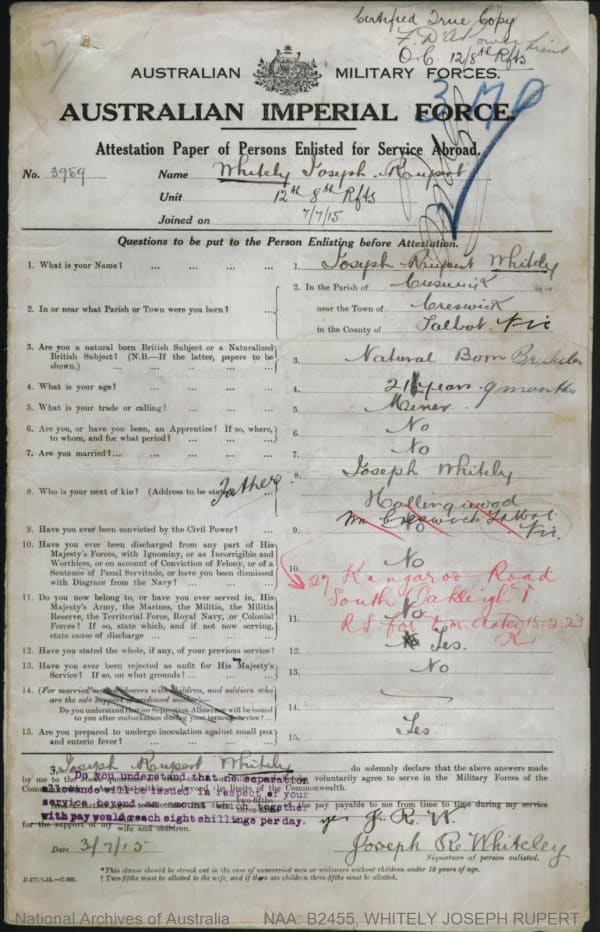 Certified True Copy
O.C. 12/8th Rfts
AUSTRALIAN MILITARY FORCES.
AUSTRALIAN IMPERIAL FORCE.
Attestation Paper of Persons Enlisted for Service Abroad.
No. 3989 Name Whitely Joseph Rupert
Unit 12th 8th Rfts
Joined on 7/7/15
Questions to be put to the Person Enlisting before Attestation.
1. What is your Name? ... ... ... ... 1. Joseph Rupert Whitely
2. In or near what Parish or Town were you born? ... 2. In the Parish of Creswick in or
near the Town of Creswick
in the County of Talbot Vic
3. Are you a natural born British Subject or a Naturalized
British Subject? (N.B.—If the latter, papers to be
shown.) ... ... ... ... 3. Natural Born British
4. What is your age? ... ... ... ... 4. 21 years 9 months
5. What is your trade or calling? ... ... ... 5. Miner
6. Are you, or have you been, an Apprentice? If so, where,
to whom, and for what period? ... ... ... 6. No
7. Are you married?... ... ... ... ... 7. No
8. Who is your next of kin? (Address to be stated) ... Father 8. Joseph Whitely
Hollingwood
Creswick Talbot
Vic.
9. Have you ever been convicted by the Civil Power? ... 9. No
10. Have you ever been discharged from any part of His
Majesty's Forces, with Ignominy, or as Incorrigible and
Worthless, or on account of Conviction of Felony, or of a
Sentence of Penal Servitude, or have you been dismissed
with Disgrace from the Navy? ... ... ... 10. No
29 Kangaroo Road
South Oakleigh
R.S. for t.m. dated 15.2.23
11. Do you now belong to, or have you ever served in, His
Majesty's Army, the Marines, the Militia, the Militia
Reserve, the Territorial Force, Royal Navy, or Colonial
Forces? If so, state which, and if not now serving,
state cause of discharge ... ... ... ... 11. No
12. Have you stated the whole, if any, of your previous service? 12. Yes.
13. Have you ever been rejected as unfit for His Majesty's
Service? If so, on what grounds? ... ... ... 13. No
14. (For married men, widowers with children, and soldiers who
are the sole support of widowed mother)
Do you understand that no Separation Allowance will be issued
to you after embarkation during your term of service? ... 14.
15. Are you prepared to undergo inoculation against small pox
and enteric fever? ... ... ... ... 15. Yes
I, Joseph Rupert Whitely do solemnly declare that the above answers made
by me to the voluntarily agree to serve in the Military Forces of the
limits of the Commonwealth.
Do you understand that no separation
allowance will be issued in respect of your
service beyond an amount which together
with pay would reach eight shillings per day. yes J. R. W.
pay payable to me from time to time during my service
for the support of my wife and children.
Date 3/7/15 Joseph R. Whiteley
Signature of person enlisted.
*This clause should be struck out in the case of unmarried men or widowers without children under 18 years of age.
† Two-fifths must be allotted to the wife, and if there are children three-fifths must be allotted.
National Archives of Australia NAA: B2455, WHITELY JOSEPH RUPERT